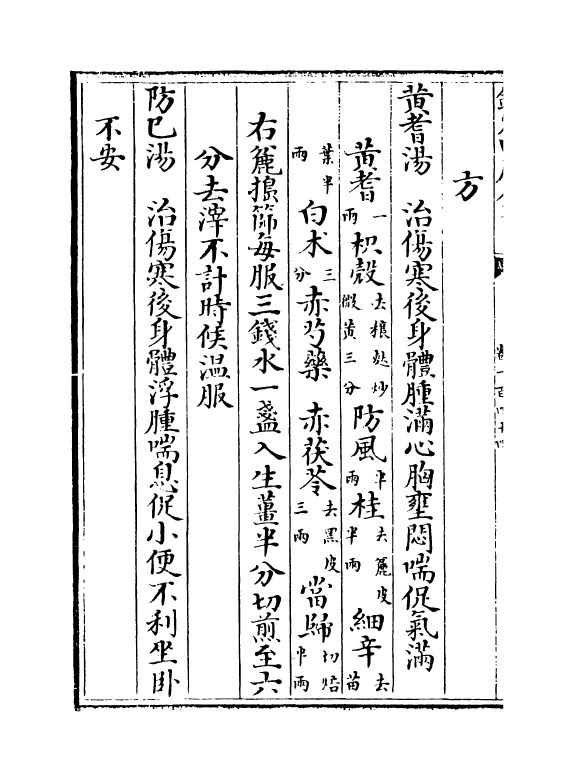 方
黄耆湯　治傷寒後身體腫滿心胸壅悶喘促氣滿
黄耆一兩枳殼去穰麸炒微黄三分防風半兩桂去麄皮半兩細辛去苗
葉半兩白术三分赤芍藥　赤茯苓去黑皮三兩當歸切焙半兩
右麄擣篩每服三錢水一盞入生薑半分切煎至六
分去滓不計時候温服
防已湯　治傷寒後身體浮腫喘息促小便不利坐卧
不安